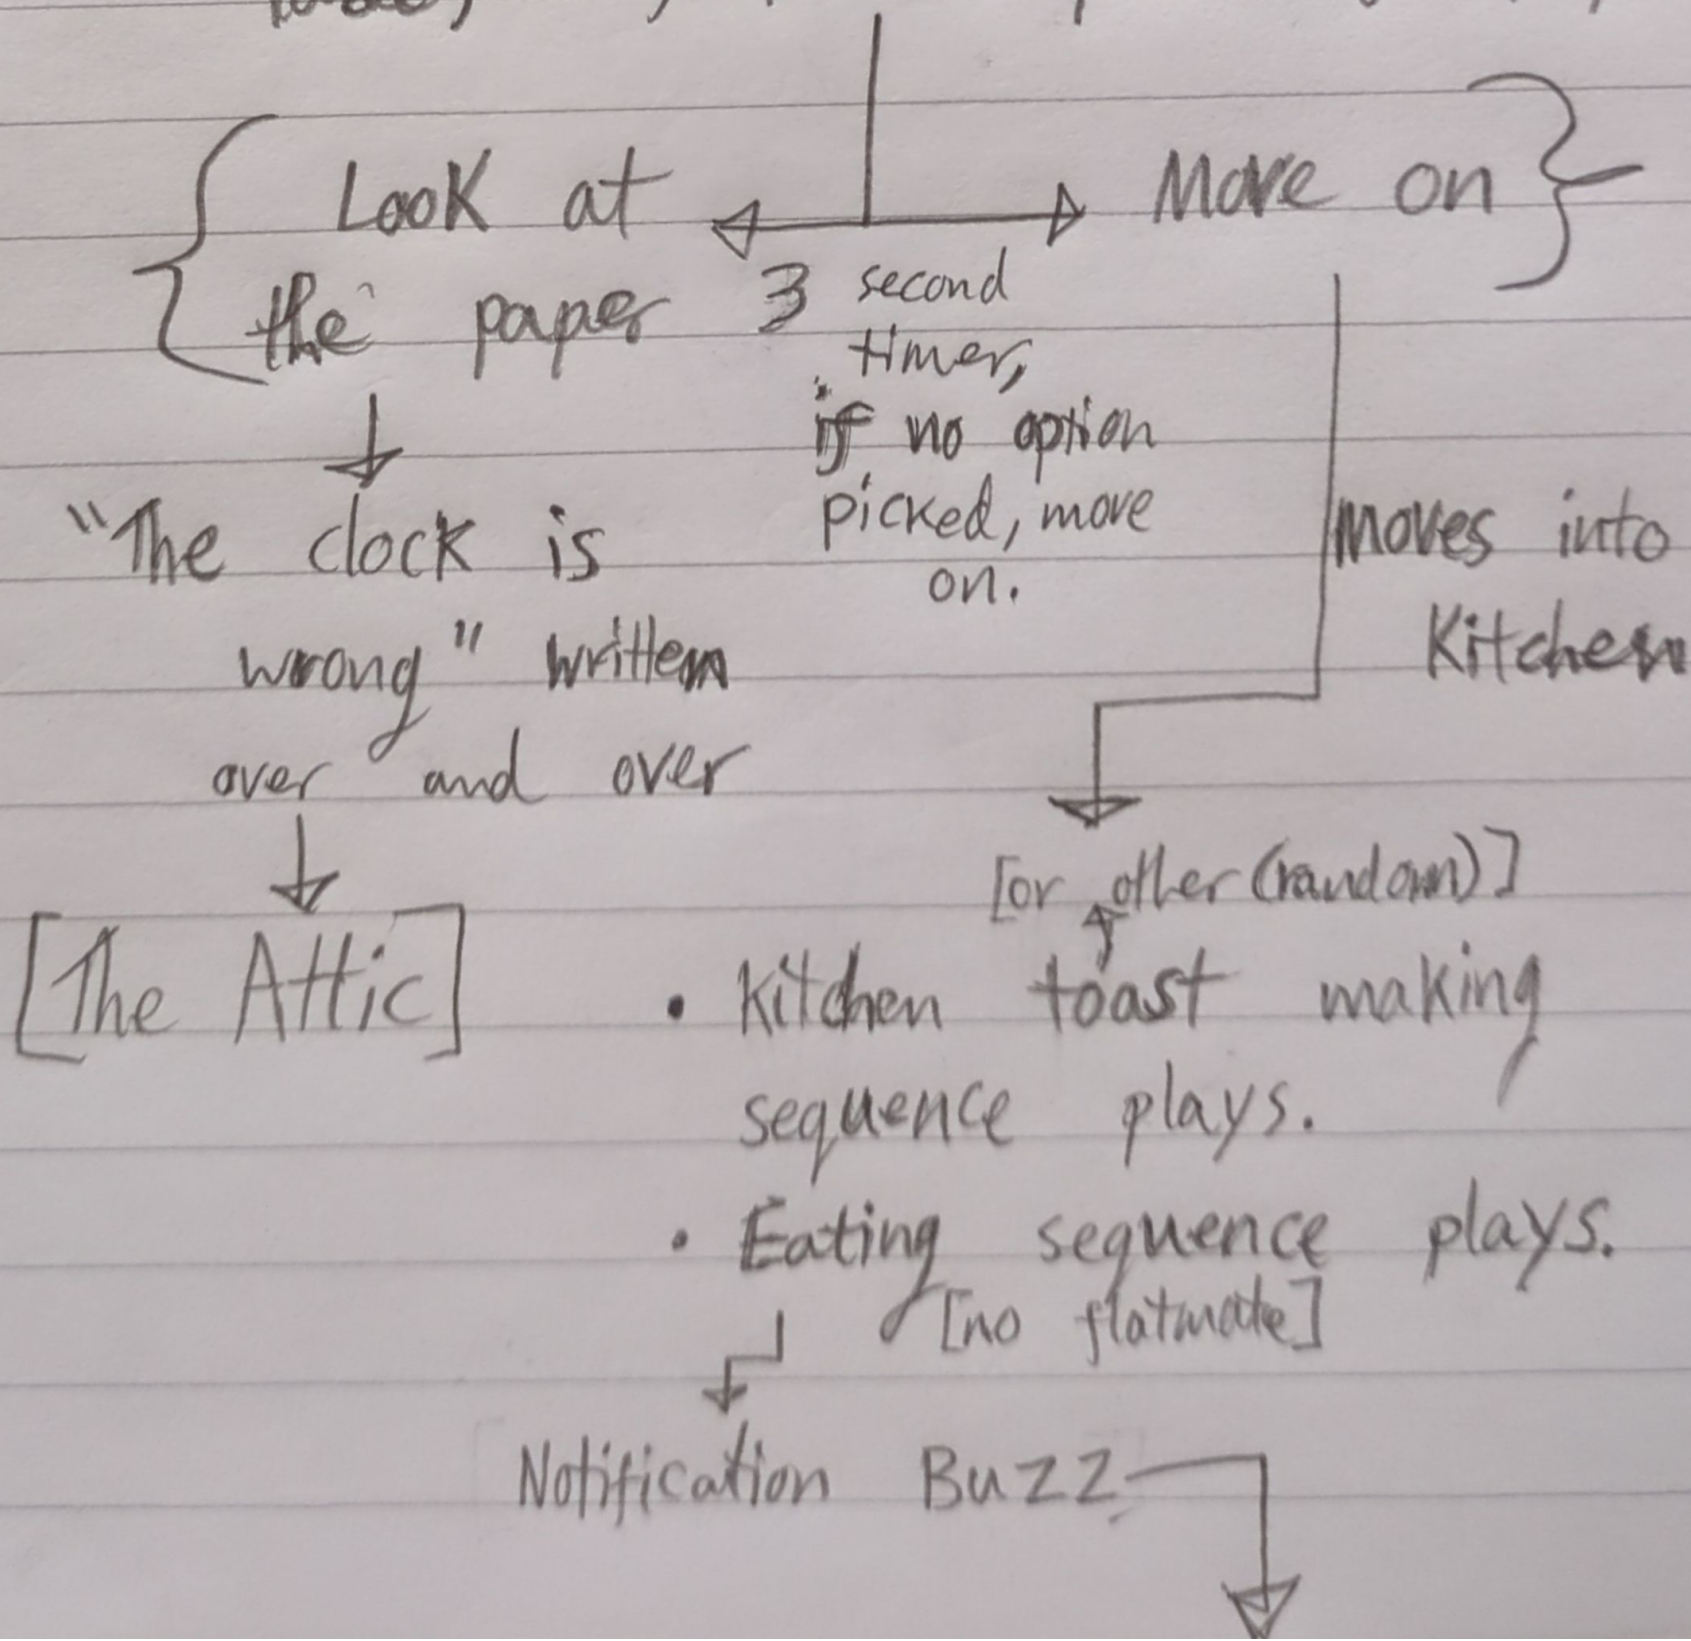 Look at
the paper
Move on
3 second
timer,
if no option
picked, move
on.
"The clock is
wrong" written
over and over
[The Attic]
moves into
Kitchen
[or other (random)]
• Kitchen toast making
sequence plays.
• Eating sequence plays.
[no flatmate]
Notification Buzz